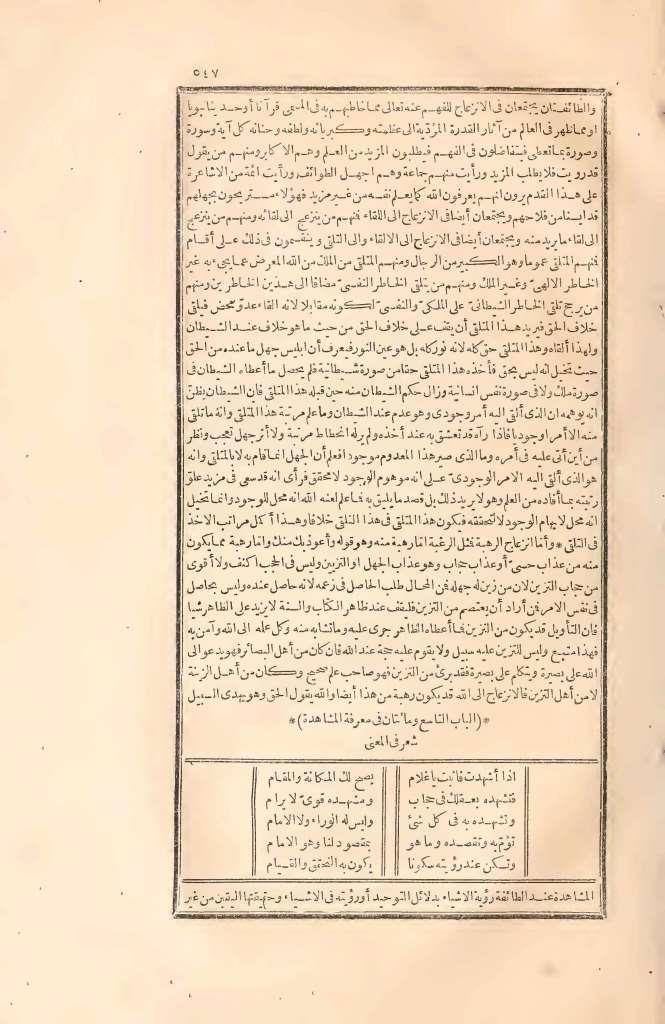 ٥٤٧
والطائفتان يجتمعان فى الانزعاج للفهم عنه تعالى مما خاطبهم به فى المسمى قرآنا أو حديثا نبويا
او مما ظهر فى العالم من آثار القدرة المؤدّية الى عظمته وكبريائه ولطفه وحنانه كل آية وسورة
وصورة بما تعطى فيتفاضلون فى الفهم فيطلبون المزيد من العلم وهم الاكابر ومنهم من يقول
قد رويت فلا يطلب المزيد ورأيت منهم جماعة وهم اجهل الطوائف ورأيت ائمة من الاشاعرة
على هذا القدم يرون انهم يعرفون الله كما يعلم نفسه من غير مزيد فهؤلاء مستريحون بجهلهم
قد ايسنا من فلاحهم ويجتمعان أيضا فى الانزعاج الى اللقاء فمنهم من ينزعج الى لقائه ومنهم من ينزعج
الى لقاء ما يريد منه ويجتمعان أيضا فى الانزعاج الى الالقاء والى التلقى وينقسمون فى ذلك على أقسام
فمنهم المتلقى عموما وهو الكبير من الرجال ومنهم المتلقى من الملك من الله المعرض عما يجىء به غير
الخاطر الالهىّ وغير الملك ومنهم من يتلقى الخاطر النفسىّ مضافا الى هذين الخاطرين ومنهم
من يرجح تلقى الخاطر الشيطانىّ على الملكىّ والنفسىّ لكونه مقابلا لانه القاء عدوّ محض فيلقى
خلاف الحق فيريد هذا المتلقى أن يقف على خلاف الحق من حيث ما هو خلاف عند الشيطان
ولهذا ألقاه وهذا المتلقى حق كله لانه نور كله بل هو عين النور فيعرف أن ابليس جهل ما عنده من الحق
حيث تخيل انه ليس بحق فأخذه هذا المتلقى حقا من صورة شيطانية فلم يحصل ما أعطاه الشيطان فى
صورة ملك ولا فى صورة نفس انسانية وزال حكم الشيطان منه حين قبله هذا المتلقى فان الشيطان يظنّ
انه يوهمه ان الذى ألقى اليه أمر وجودى وهو عدم عند الشيطان وما علم مرتبة هذا المتلقى وانه ما تلقى
منه الا امرا وجوديا فاذا رآه قد تعشق به عند أخذه ولم ير له انحطاط مرتبة ولا أثر جهل تعجب ونظر
من أين أتى عليه فى أمره وما الذى صير هذا المعدوم موجودا فعلم أن الجهل انما قام به لا بالمتلقى وانه
هو الذى ألقى اليه الامر الوجودىّ على انه موهوم الوجود لا محقق فرأى انه قد سعى فى مزيد علوّ
رتبته بما أفاده من العلم وهو لا يريد ذلك بل قصد ما يليق به فاعلم لعنه الله انه محل للوجود وانما تخيل
انه محل لايهام الوجود لا لتحققه فيكون هذا المتلقى فى هذا التلقى خلافا وهذا أكمل مراتب الاخذ
فى التلقى * وأما انزعاج الرهبة فمثل الرغبة اما رهبة منه وهو قوله وأعوذ بك منك واما رهبة مما يكون
منه من عذاب حسىّ أو عذاب حجاب وهو عذاب الجهل او التزيين وليس فى الحجب اكثف ولا أقوى
من حجاب التزين لان من زين له جهله فمن المحال طلب الحاصل فى زعمه لانه حاصل عنده وليس بحاصل
فى نفس الامر فمن أراد أن يعتصم من التزين فليقف عند ظاهر الكتاب والسنة لا يزيد على الظاهر شيا
فان التأويل قد يكون من التزين فما أعطاه الظاهر جرى عليه وما تشابه منه وكل علمه الى الله وآمن به
فهذا متبع وليس للتزين عليه سبيل ولا يقوم عليه حجة عند الله فان كان من أهل البصائر فهو يدعو الى
الله على بصيرة ويتكلم على بصيرة فقد برئ من التزين فهو صاحب علم صحيح وكان من أهل الزينة
لا من أهل التزين فالانزعاج الى الله قد يكون رهبة من هذا أيضا والله يقول الحق وهو يهدى السبيل
*(الباب التاسع ومائتان فى معرفة المشاهدة)*
شعر فى المعنى
اذا أشهدت فاثبت يا غلام يصح لك المكانة والمقام
فتشهده بعقلك فى حجاب ومشهده قوىّ لا يرام
وتشهده به فى كل شئ وليس له الوراء ولا الامام
تؤمّ به وتقصده وما هو بمقصود لنا وهو الامام
وتسكن عند رؤيته سكونا يكون به التحقق والقيام
المشاهدة عند الطائفة رؤية الاشياء بدلائل التوحيد أو رؤيته فى الاشياء وحقيقتها اليقين من غير